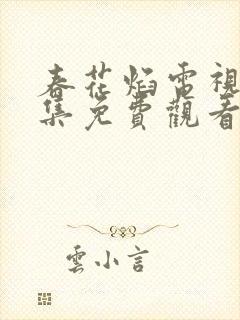 春花焰電視
集免費觀看
雲小言